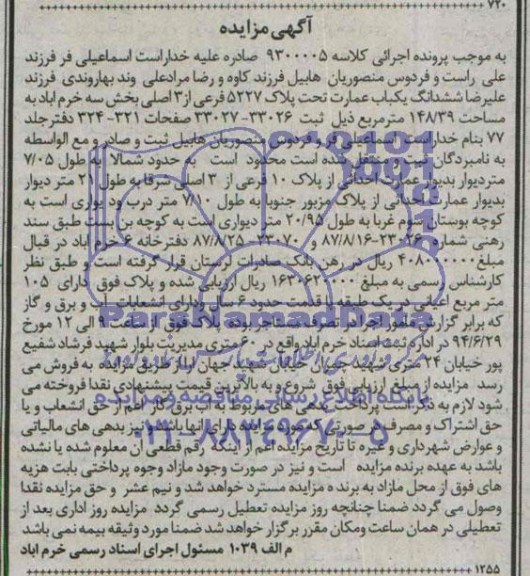 ۷۲۰
آگهی مزایده
به موجب پرونده اجرائی کلاسه ۹۳۰۰۰۰۵ صادره علیه خداراست اسماعیلی فر فرزند
علی راست و فردوس منصوریان هابیل فرزند کاوه و رضا مرادعلی وند بهاروندی فرزند
علیرضا ششدانگ یکباب عمارت تحت پلاک ۵۲۲۷ فرعی از ۳ اصلی بخش سه خرم اباد به
مساحت ۱۴۸/۳۹ مترمربع ذیل ثبت ۳۳۰۲۶-۳۳۰۲۷ صفحات ۳۲۱-۳۲۴ دفتر جلد
۷۷ بنام خداراست اسماعیلی فر و فردوس منصوریان هابیل ثبت و صادر و مع الواسطه
به نامبردگان ثبت و منتقل شده است محدود است به حدود شمالا به طول ۷/۰۵
متر دیوار بدیوار عمارت احداثی از پلاک ۱۰ فرعی از ۳ اصلی شرقا به طول ۲۱ متر دیوار
بدیوار عمارت احداثی از پلاک مزبور جنوبا به طول ۷/۱۰ متر درب و دیواری است به
کوچه بوستان سوم غربا به طول ۲۰/۹۵ متر دیواری است به کوچه بن بست طبق سند
رهنی شماره ۲۳۰۲۶-۸۷/۸/۱۶ و ۲۳۰۷۰-۸۷/۸/۲۵ دفترخانه ۶ خرم آباد در قبال
مبلغ ۴۰۸۰۰۰۰۰۰ ریال در رهن بانک صادرات لرستان قرار گرفته است و طبق نظر
کارشناس رسمی به مبلغ ۱۶۳۰۶۲۰۰۰۰ ریال ارزیابی شده و پلاک فوق دارای ۱۰۵
متر مربع اعیانی در یک طبقه با قدمت حدود ۶ سال دارای انشعابات آب و برق و گاز
که برابر گزارش مامور اجرا در تصرف مستاجر بوده پلاک فوق از ساعت ۹ الی ۱۲ مورخ
۹۴/۶/۲۹ در اداره ثبت اسناد خرم اباد واقع در ۶۰ متری مدیریت بلوار شهید فرشاد شفیع
پور خیابان ۲۴ متری شهید چوبان خیابان شهید جهان آرا از طریق مزایده به فروش می
رسد مزایده از مبلغ ارزیابی فوق شروع و به بالاترین قیمت پیشنهادی نقدا فروخته می
شود لازم به ذکر است پرداخت بدهی های مربوط به آب برق گاز اعم از حق انشعاب و یا
حق اشتراک و مصرف در صورتی که مورد مزایده دارای آنها باشد و نیز بدهی های مالیاتی
و عوارض شهرداری و غیره تا تاریخ مزایده اعم از اینکه رقم قطعی آن معلوم شده یا نشده
باشد به عهده برنده مزایده است و نیز در صورت وجود مازاد وجوه پرداختی بابت هزینه
های فوق از محل مازاد به برنده مزایده مسترد خواهد شد و نیم عشر و حق مزایده نقدا
وصول می گردد ضمنا چنانچه روز مزایده تعطیل رسمی گردد مزایده روز اداری بعد از
تعطیلی در همان ساعت و مکان مقرر برگزار خواهد شد ضمنا مورد وثیقه بیمه نمی باشد
م الف ۱۰۳۹ مسئول اجرای اسناد رسمی خرم اباد
۱۲۵۵
ParsNamadData
پایگاه اطلاع رسانی مناقصه و مزایده
۰۲۱-۸۸۳۴۹۶۷۰-۵